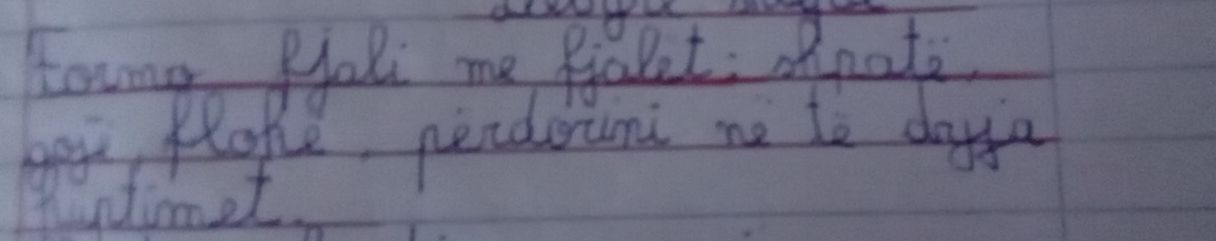 Formo fjali me fjalët: shpatë,
gojë, flokë, përdorini në të dyja
kuptimet.